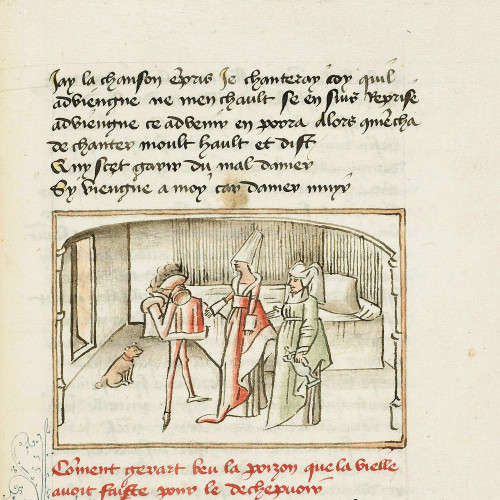 Jay la chanson epris Je chanteray coy quil
adviengne ne men chault se en suis repris
adviengne ce advenir en porra Alors comẽcha
de chanter moult hault et dist
Quy scet garir du mal damer
Sy viengne a moy car damer muyr
Cõment gerart beu la poizon que la vielle
avoit faitte pour le dechepvoir